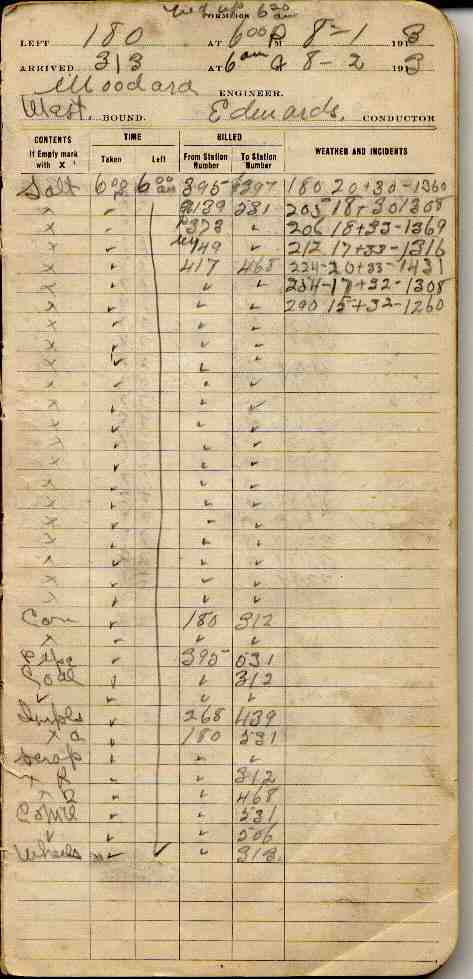 Tied up 6 20 am
FORMEIGN
LEFT 180 AT 6 00 P M 8-1 191 3
ARRIVED 313 AT 6 am M 8-2 191 3
Woodard ENGINEER.
West. BOUND. Edwards. CONDUCTOR
CONTENTS TIME BILLED WEATHER AND INCIDENTS
If Empty mark with "X" Taken Left From Station Number To Station Number
Salt 6 00 6 00 am 395 397 180 20+30-1360
x ✓ 139 531 205 18+30 1308
x ✓ 373 ✓ 206 18+33-1369
x ✓ 49 ✓ 212 17+33-1316
x ✓ 417 468 224-20+33-1431
x ✓ ✓ ✓ 254-17+32-1308
x ✓ ✓ ✓ 290 15+32-1260
x ✓ ✓ ✓
x ✓ ✓ ✓
x ✓ ✓ ✓
x ✓ ✓ ✓
x ✓ ✓ ✓
x ✓ ✓ ✓
x ✓ ✓ ✓
x ✓ ✓ ✓
x ✓ ✓ ✓
x ✓ ✓ ✓
x ✓ ✓ ✓
x ✓ ✓ ✓
x ✓ ✓ ✓
x ✓ ✓ ✓
Corn ✓ 180 312
x ✓ ✓ ✓
✓ 395 531
Coal ✓ ✓ 312
✓ ✓ ✓ ✓
Impls ✓ 268 439
x a ✓ 180 531
Scrap ✓ ✓ ✓
x R ✓ ✓ 312
x ✓ ✓ 468
✓ ✓ 531
✓ ✓ ✓ 506
Wheels ✓ ✓ ✓ 313